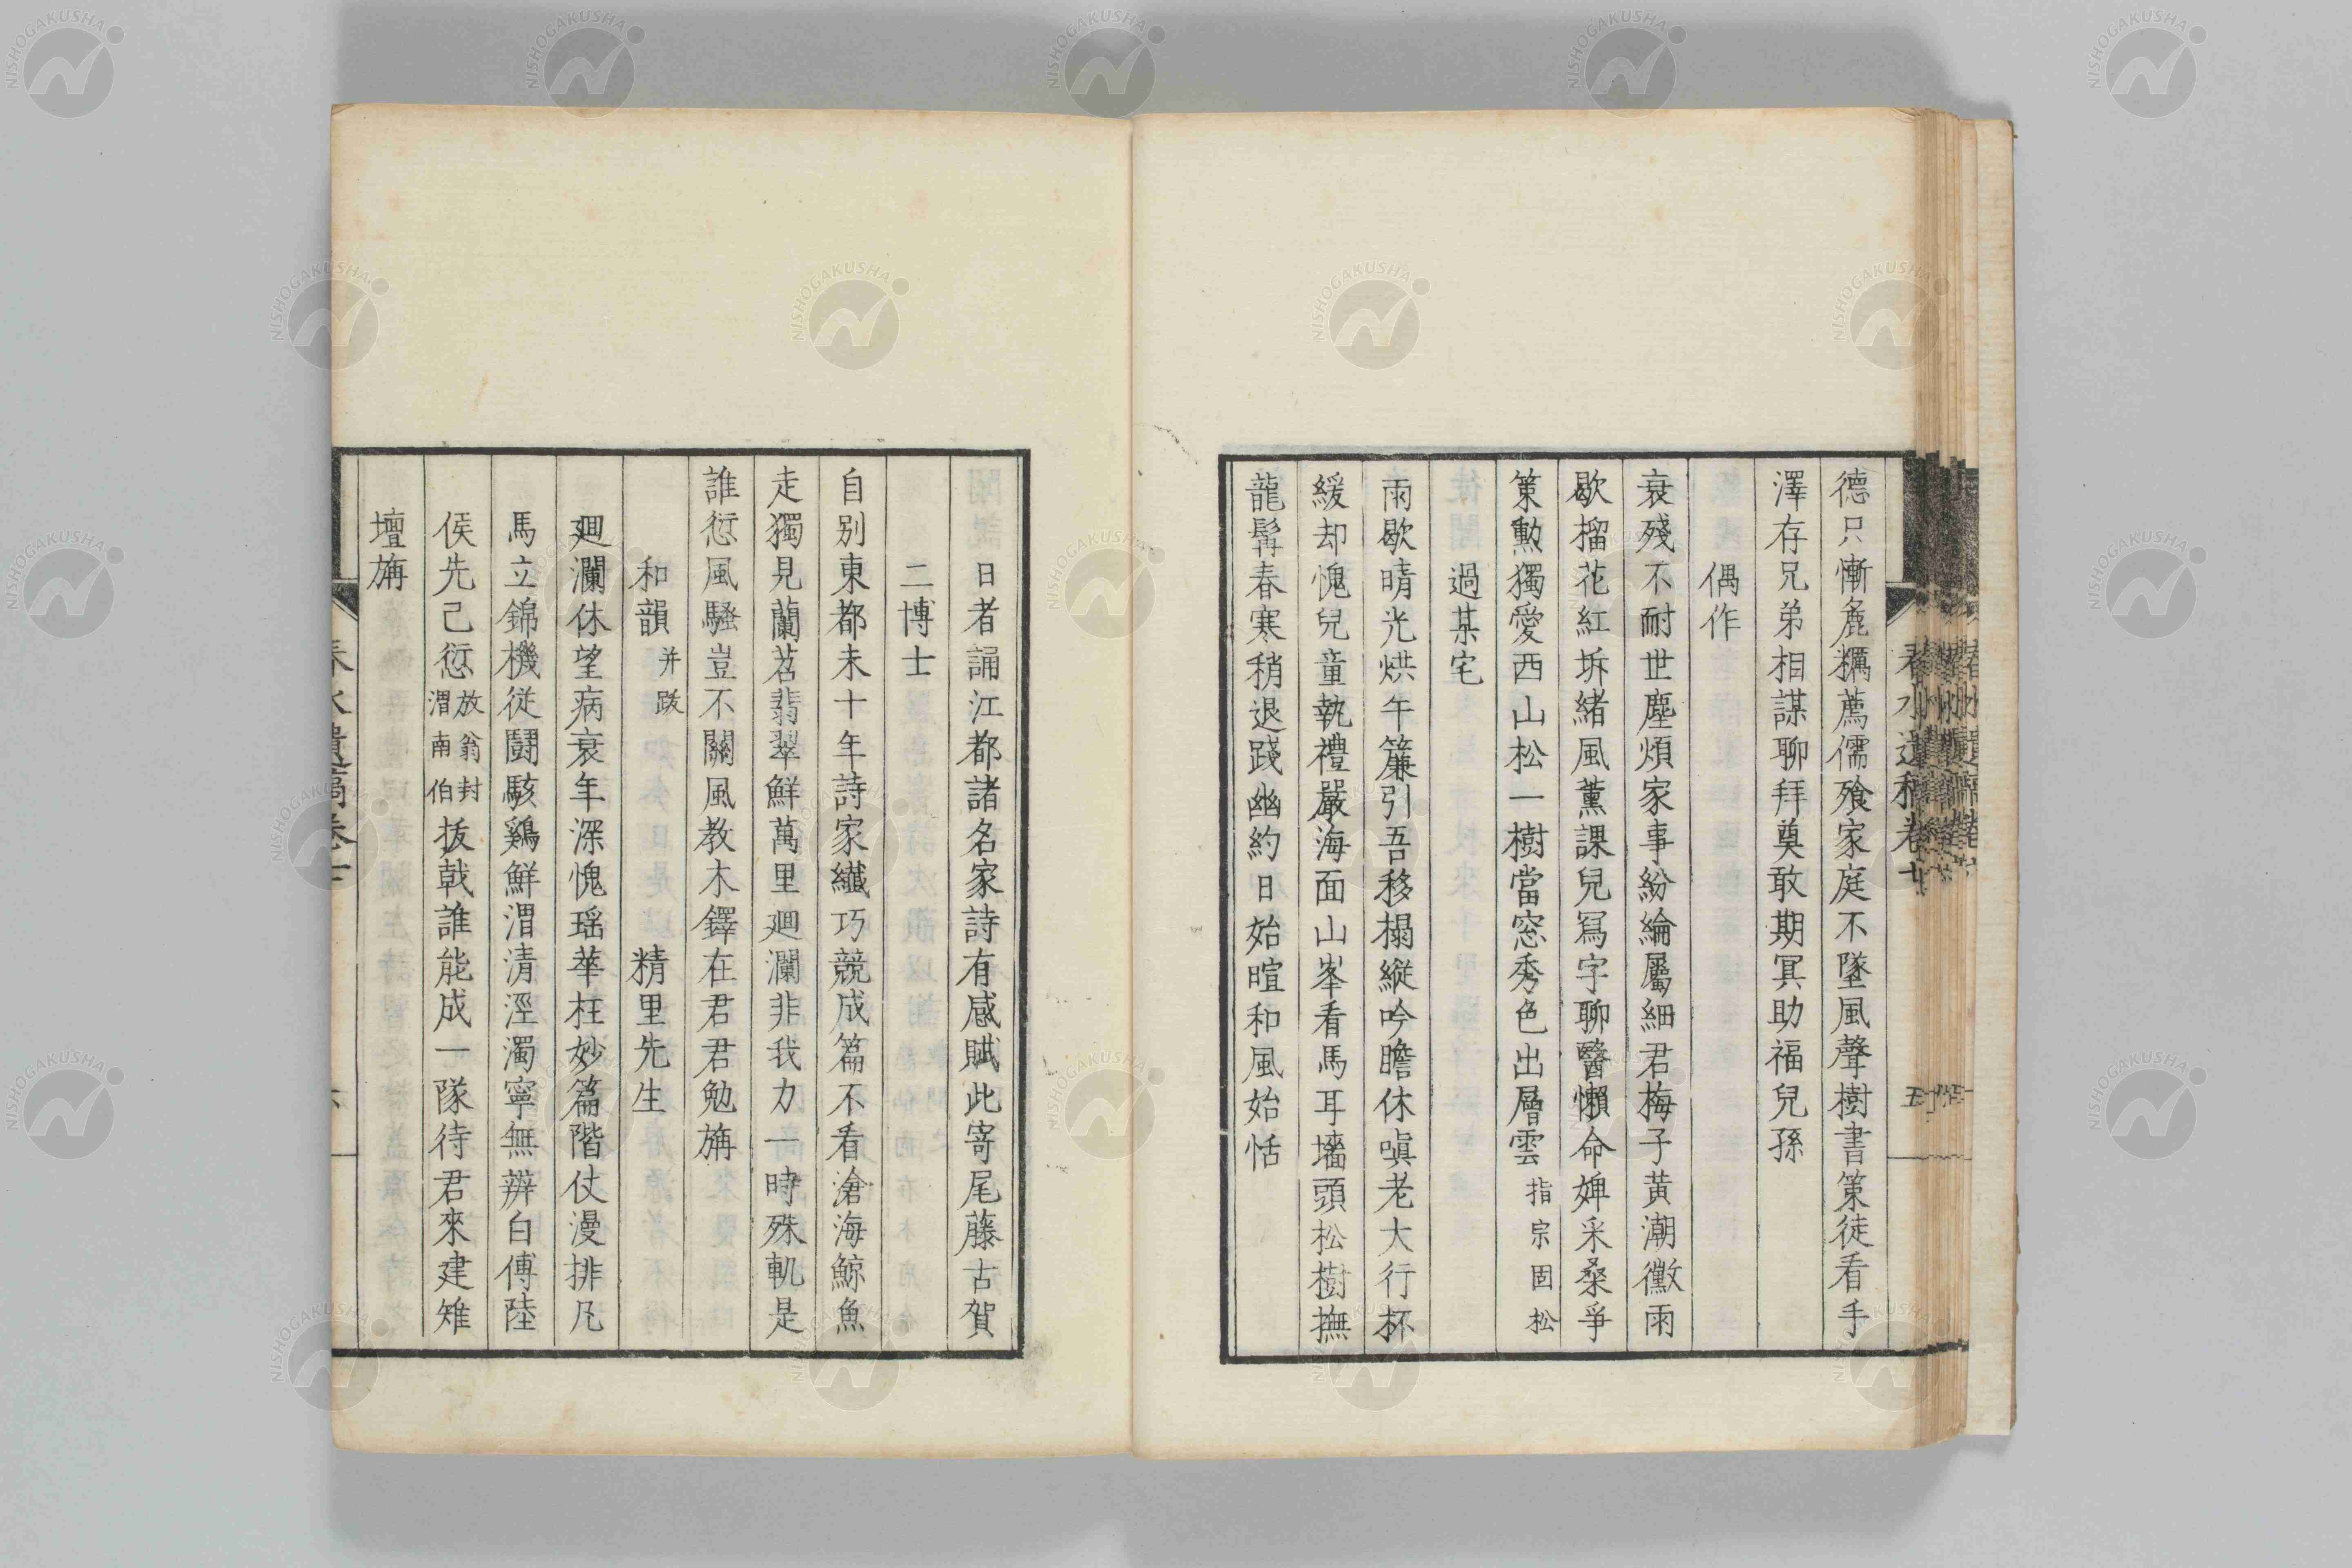 德只慚麁糲薦儒飱家庭不墜風聲樹書策徒看手
澤存兄弟相謀聊拜奠敢期冥助福兒孫
偶作
衰殘不耐世塵煩家事紛綸屬細君梅子黃潮黴雨
歇榴花紅坼緒風薰課兒冩字聊醫懶命婢采桑爭
策勲獨愛西山松一樹當窓秀色出層雲指宗固松
過某宅
雨歇晴光烘午簾引吾移榻縱吟瞻休嗔老大行杯
緩却愧兒童執禮嚴海面山峯看馬耳墻頭松樹撫
龍髯春寒稍退踐幽約日始暄和風始恬
日者誦江都諸名家詩有感賦此寄尾藤古賀
二博士
自別東都未十年詩家纖巧競成篇不看滄海鯨魚
走獨見蘭苕翡翠鮮萬里廻瀾非我力一時殊軌是
誰愆風騷豈不關風教木鐸在君君勉旃
和韻并跋 精里先生
廻瀾休望病衰年深愧瑶華枉妙篇階仗漫排凡
馬立錦機從鬪駭鷄鮮渭清涇濁寧無辨白傅陸
侯先己愆放翁封渭南伯拔戟誰能成一隊待君來建雉
壇旃
春水遺稿卷十
五
NISHOGAKUSHA